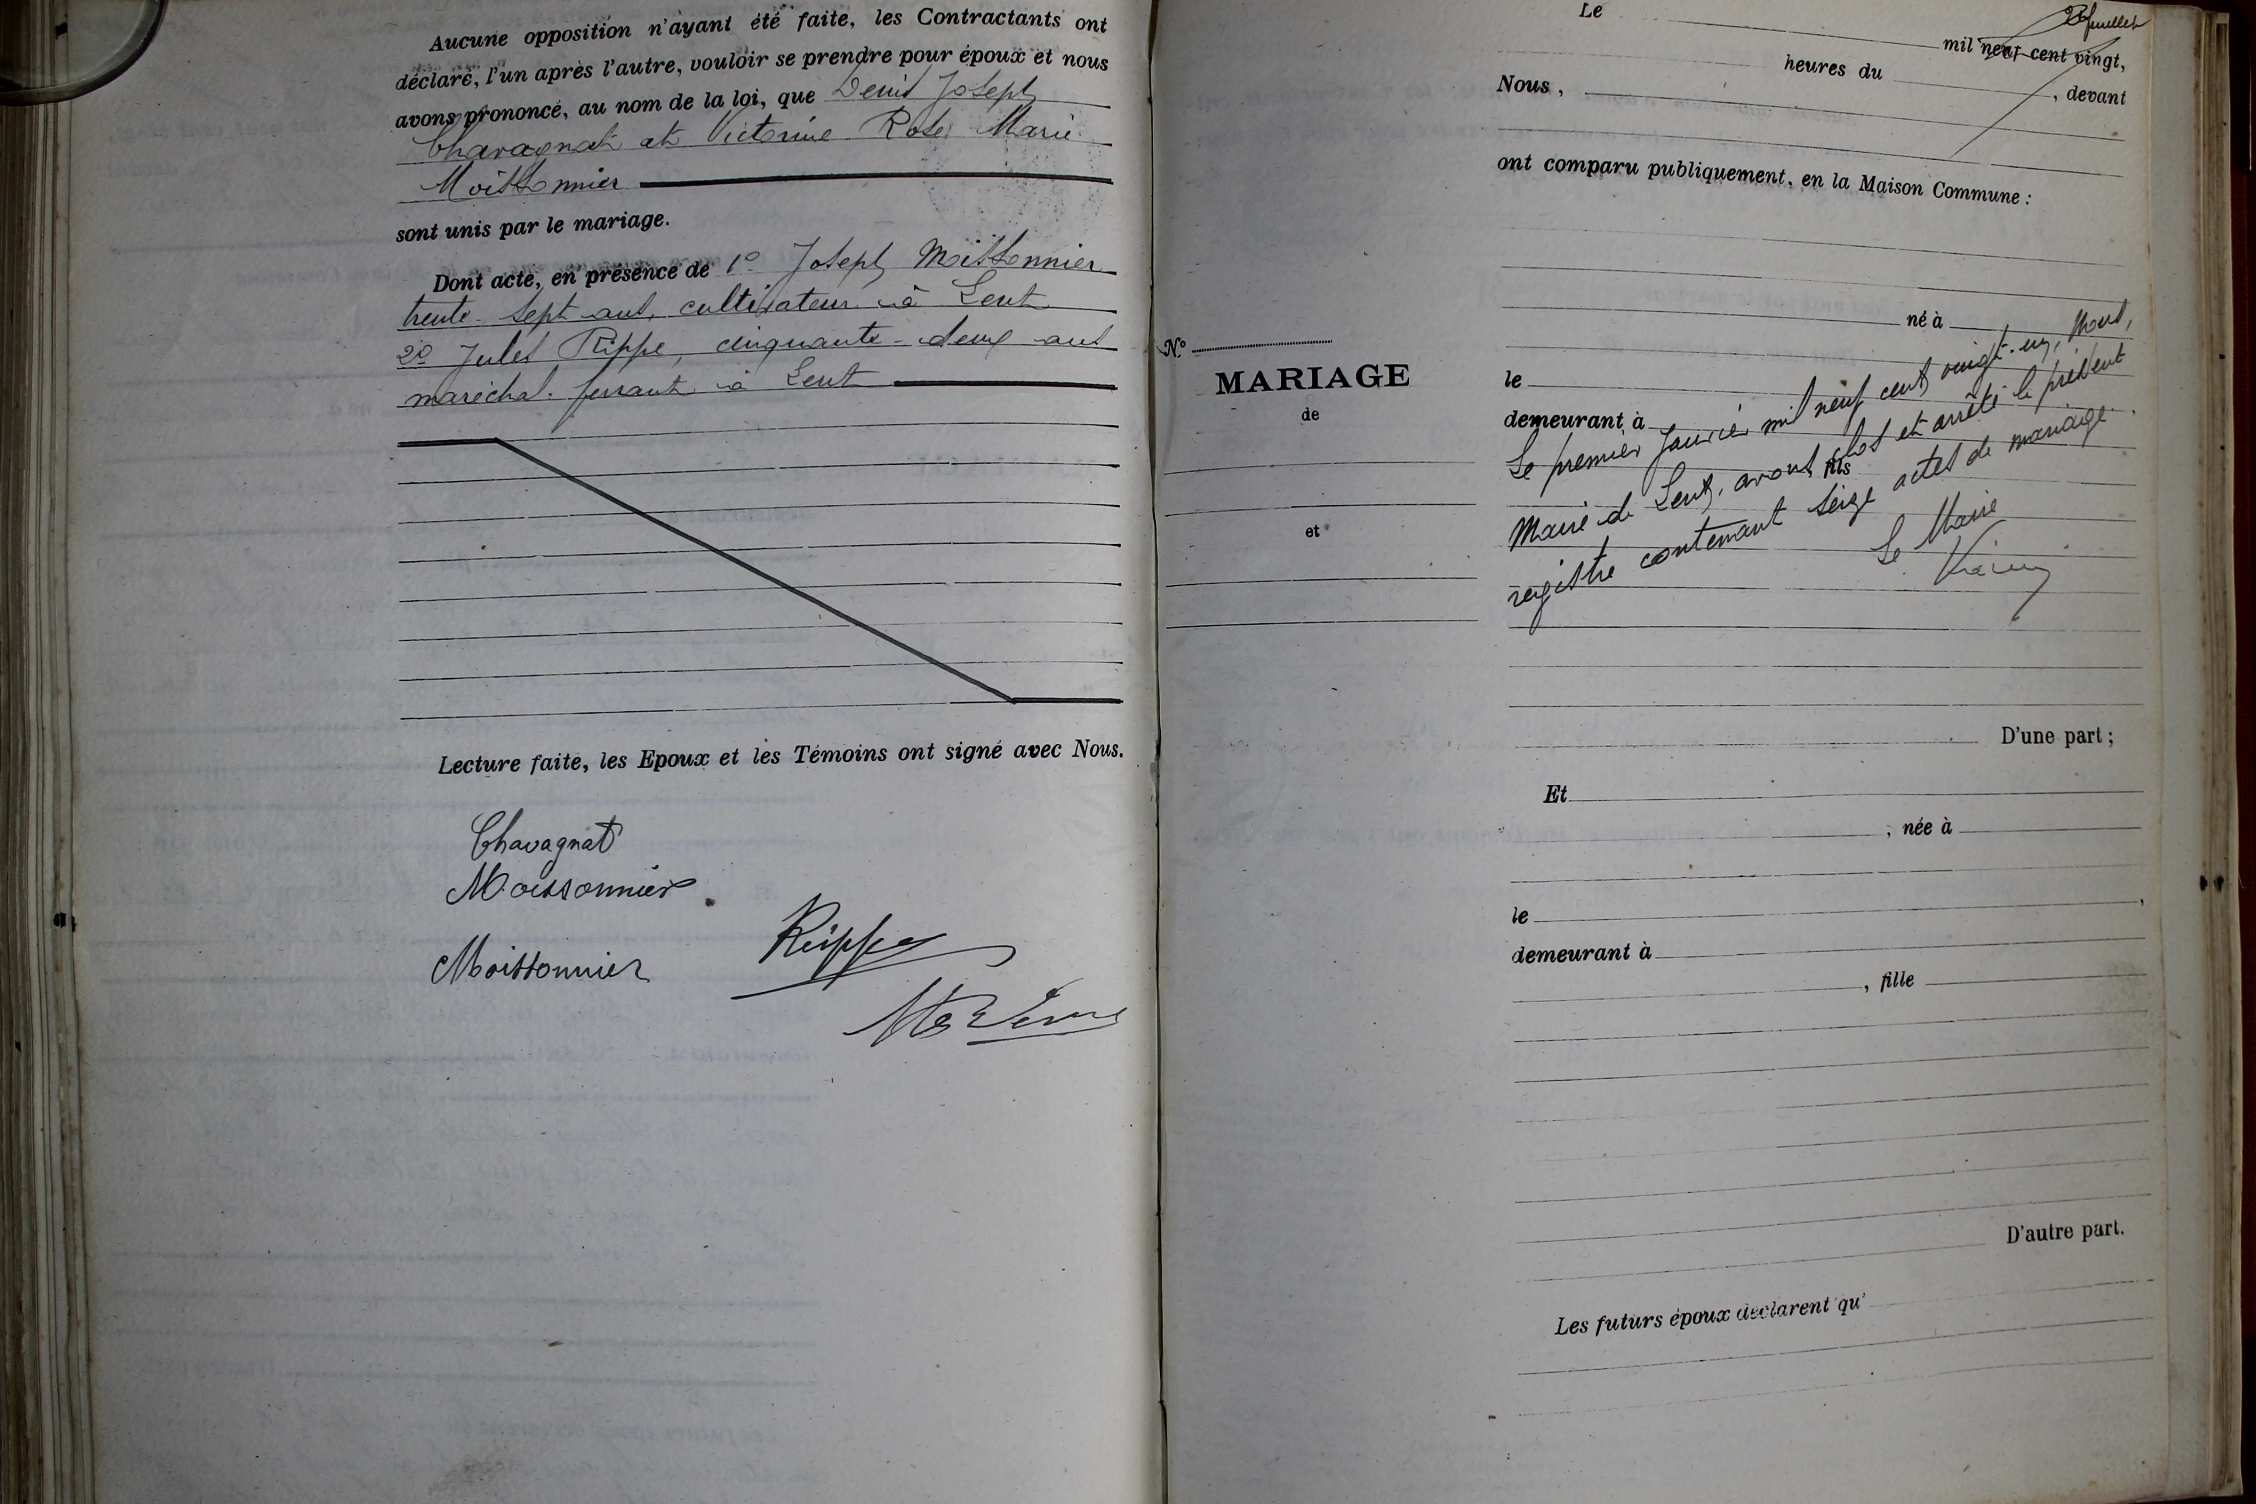 Aucune opposition n'ayant été faite, les Contractants ont
déclaré, l'un après l'autre, vouloir se prendre pour époux et nous
avons prononcé, au nom de la loi, que Denis Joseph
Chavagnat et Victorine Rose Marie
Moissonnier
sont unis par le mariage.
Dont acte, en présence de 1º Joseph Moissonnier
trente-sept ans, cultivateur à Lent
2º Jules Rippe, cinquante-deux ans
maréchal-ferrant à Lent
Lecture faite, les Epoux et les Témoins ont signé avec Nous.
Chavagnat
Moissonnier
Moissonnier
Rippe
feuillet
Le
mil neuf cent vingt,
heures du , devant
Nous,
ont comparu publiquement, en la Maison Commune :
né à
le
demeurant à
fils
Le premier Janvier mil neuf cent vingt-un, Nous,
Maire de Lent, avons clos et arrêté le présent
registre contenant seize actes de mariage.
Le Maire
D'une part ;
Et
, née à
le ,
demeurant à
, fille
D'autre part.
Les futurs époux déclarent qu'
N.º
MARIAGE
de
et